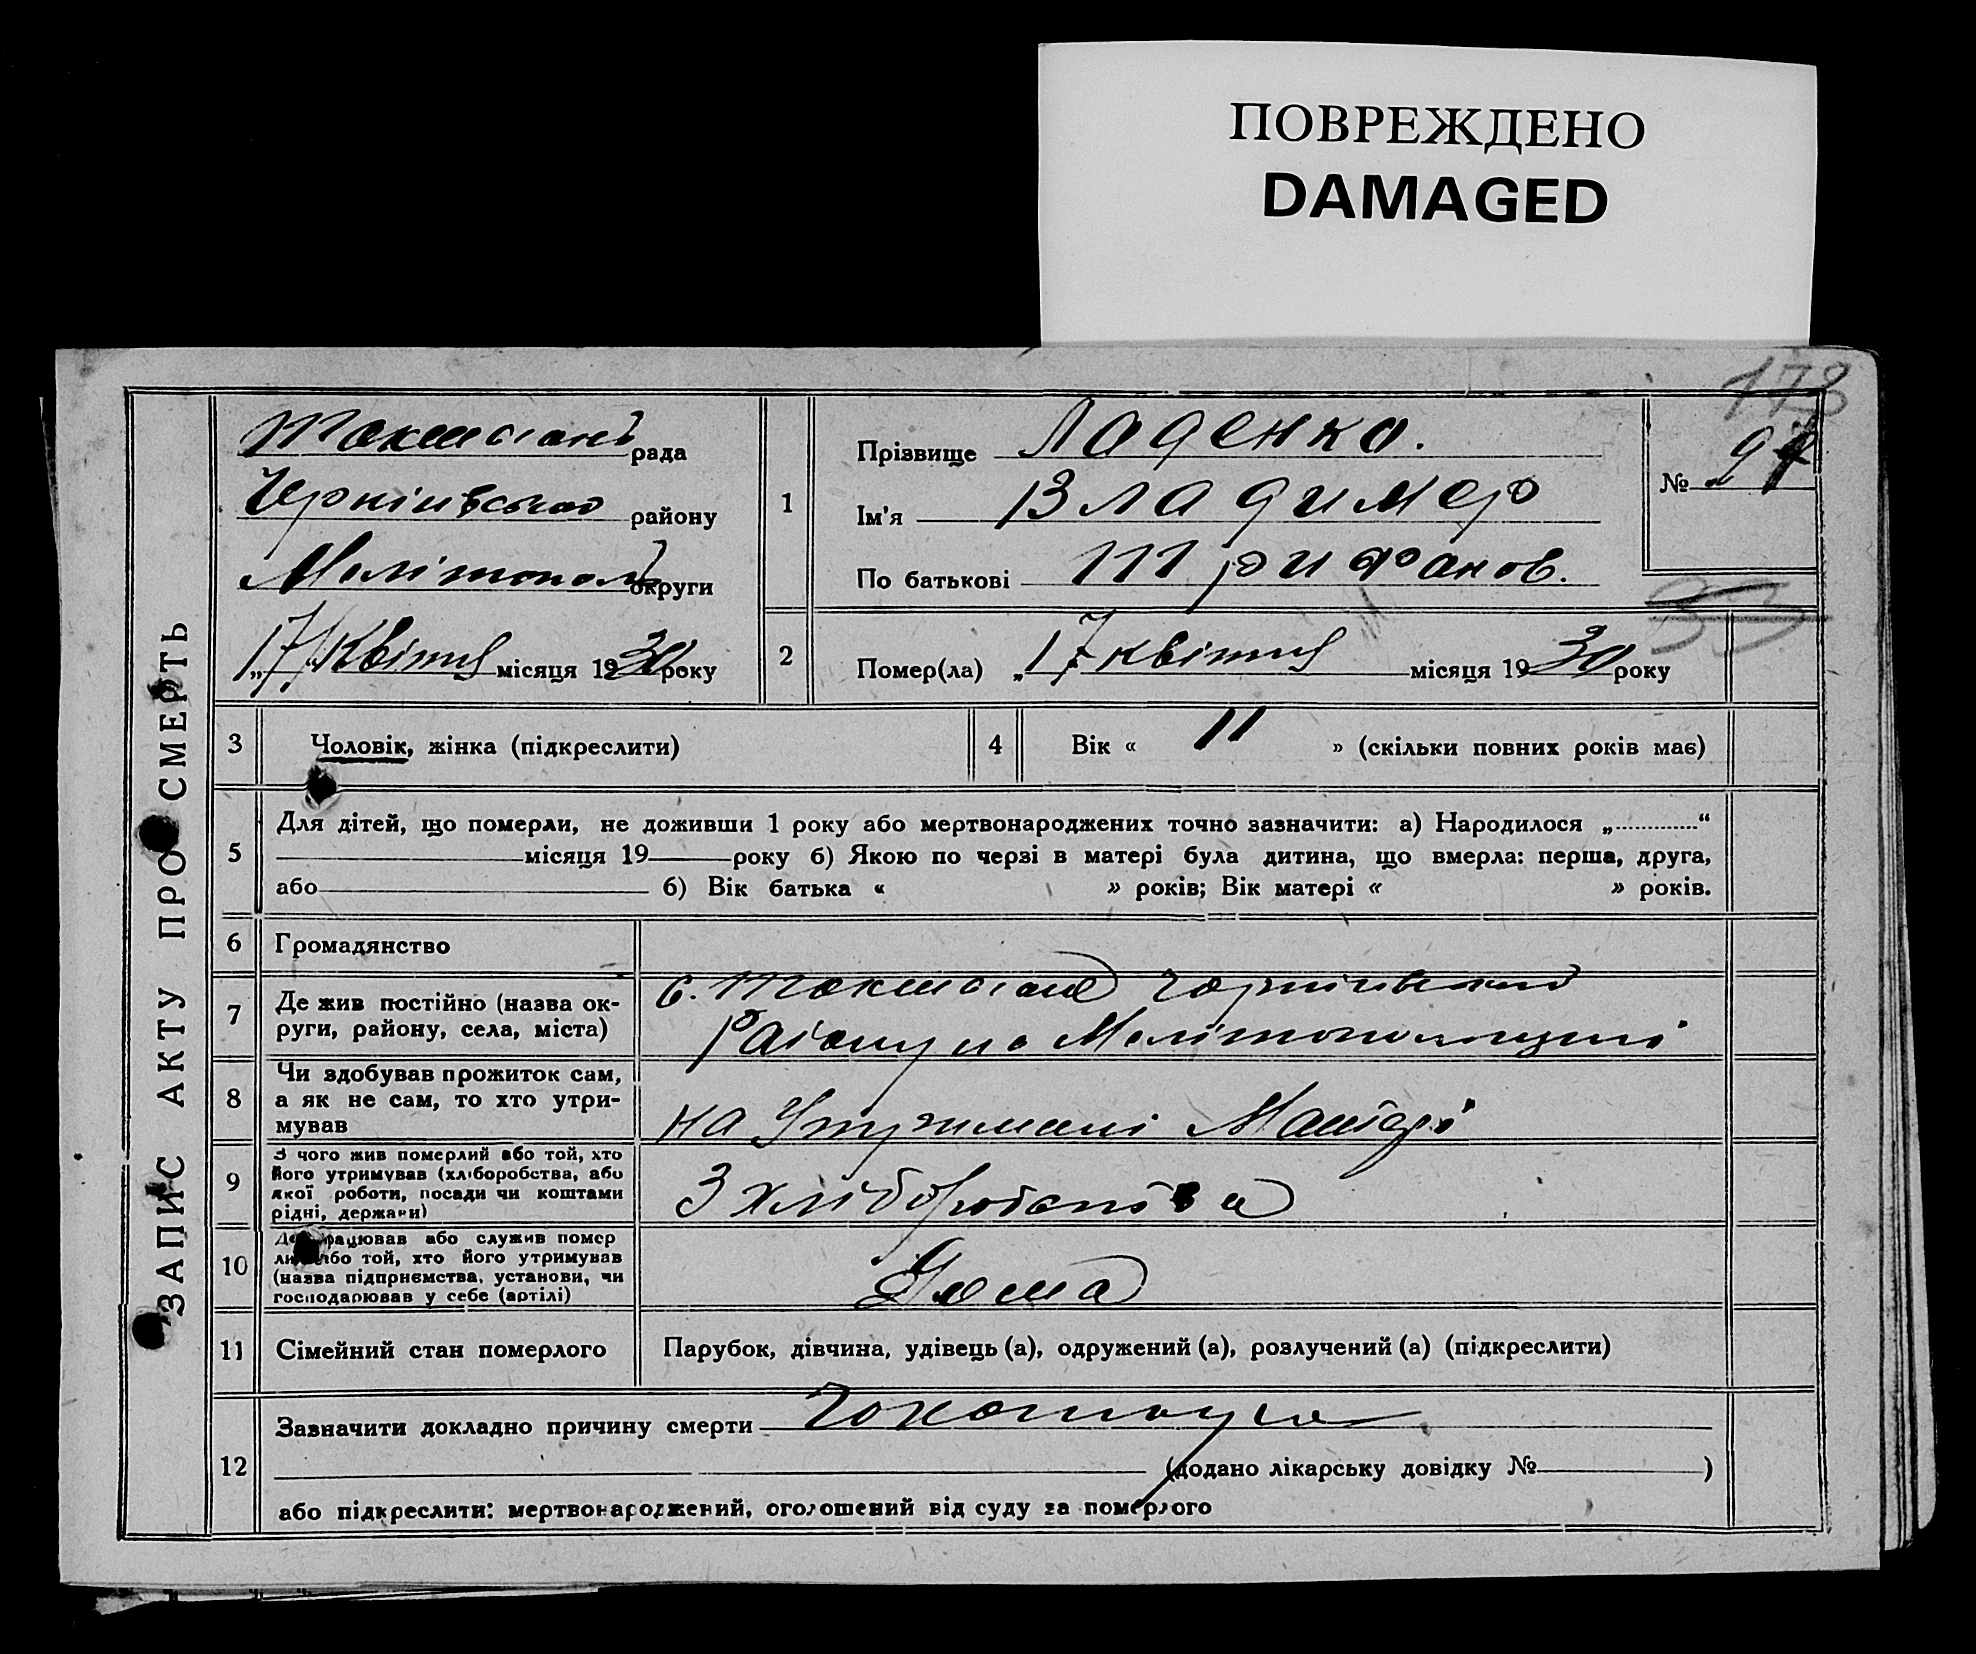 ПОВРЕЖДЕНО
DAMAGED
178
ЗАПИС АКТУ ПРО СМЕРТЬ
рада
району
Мелітопол округи
17 Квітня місяця 1930 року
1
Прізвище Ладенко.
Ім'я Владимер
По батькові Трифанов.
№
33
2
Помер(ла) „17 квітня місяця 1930 року
3
Чоловік, жінка (підкреслити)
4
Вік « 11 » (скільки повних років має)
5
Для дітей, що померли, не доживши 1 року або мертвонароджених точно зазначити: а) Народилося „.............“
місяця 19 року б) Якою по черзі в матері була дитина, що вмерла: перша, друга,
або б) Вік батька « » років; Вік матері « » років.
6
Громадянство
7
Де жив постійно (назва ок-
руги, району, села, міста)
с.
Району на
8
Чи здобував прожиток сам,
а як не сам, то хто утри-
мував
на Утримані Матері
9
З чого жив померлий або той, хто
його утримував (хліборобства, або
якої роботи, посади чи коштами
рідні, держави)
З хліборобства
10
Де працював або служив помер
лий або той, хто його утримував
(назва підприємства, установи, чи
господарював у себе (артілі)
Дома
11
Сімейний стан померлого
Парубок, дівчина, удівець (а), одружений (а), розлучений (а) (підкреслити)
12
Зазначити докладно причину смерти
(додано лікарську довідку № )
або підкреслити: мертвонароджений, оголошений від суду за померлого